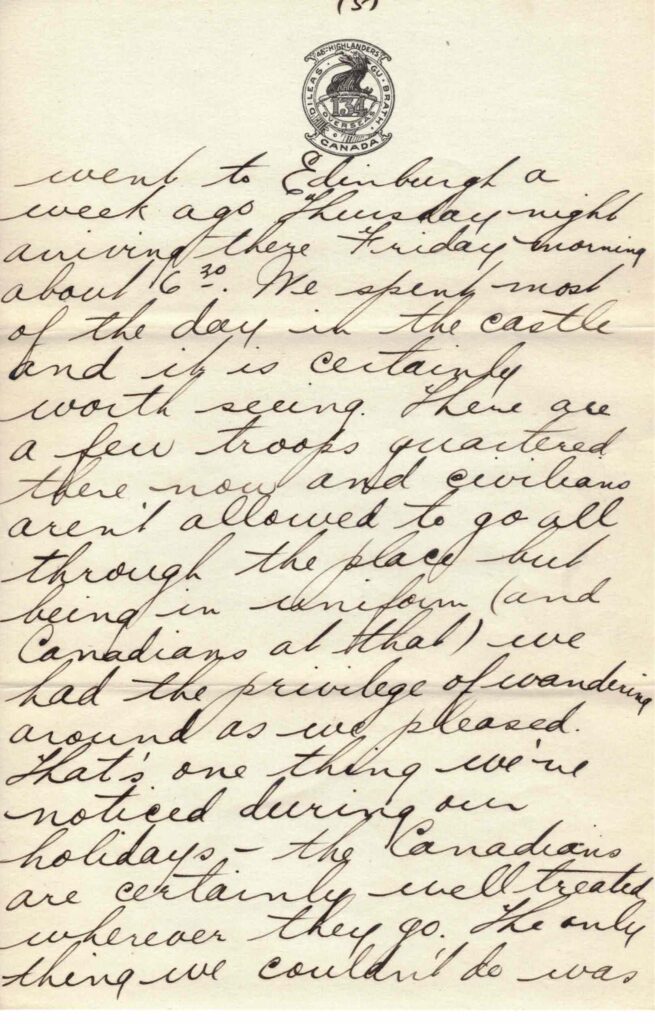 (3)
48TH HIGHLANDERS
DILEAS GU BRATH
134
OVERSEAS
CANADA
went to Edinburgh a
week ago Thursday night
arriving there Friday morning
about 6 30. We spent most
of the day in the castle
and it is certainly
worth seeing. There are
a few troops quartered
there now and civilians
aren't allowed to go all
through the place but
being in uniform (and
Canadians at that) we
had the privilege of wandering
around as we pleased.
That's one thing we've
noticed during our
holidays – the Canadians
are certainly well treated
wherever they go. The only
thing we couldn't do was